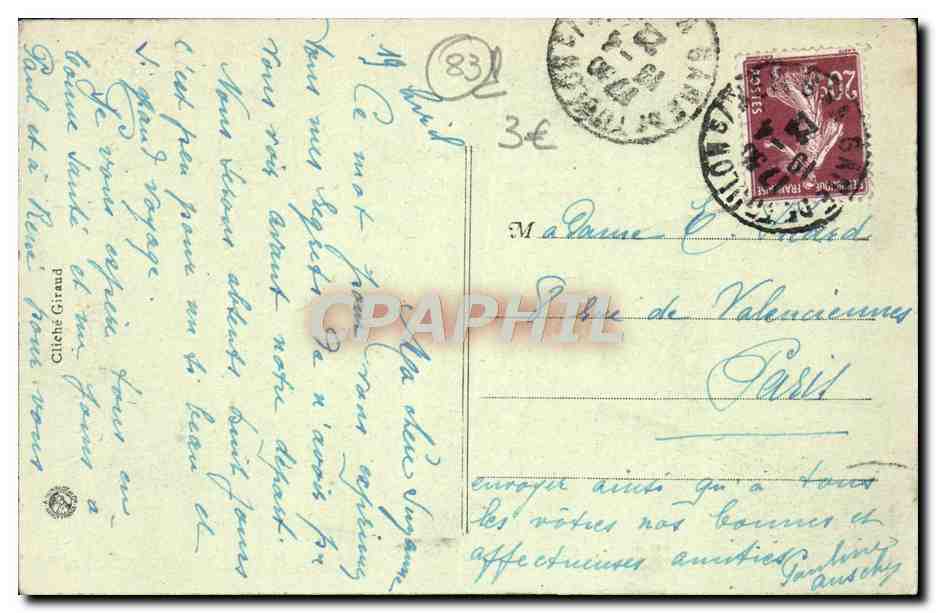 19 Avril
Ma chère Suzanne
Ce mot pour vous exprimer
tous mes regrets de n'avoir pu
vous voir avant notre départ.
Nous serons absents huit jours
c'est peu pour un si beau et
si grand voyage
Je vous espère tous en
bonne santé et me joins à
Paul et à René pour vous
envoyer ainsi qu'à tous
les vôtres nos bonnes et
affectueuses amitiés
Pauline
Madame C.
8 rue de Valenciennes
Paris
83
3€
Cliché Giraud
CPAPHIL
20c
POSTES
REPUBLIQUE FRANÇAISE
GARE DE TOULON